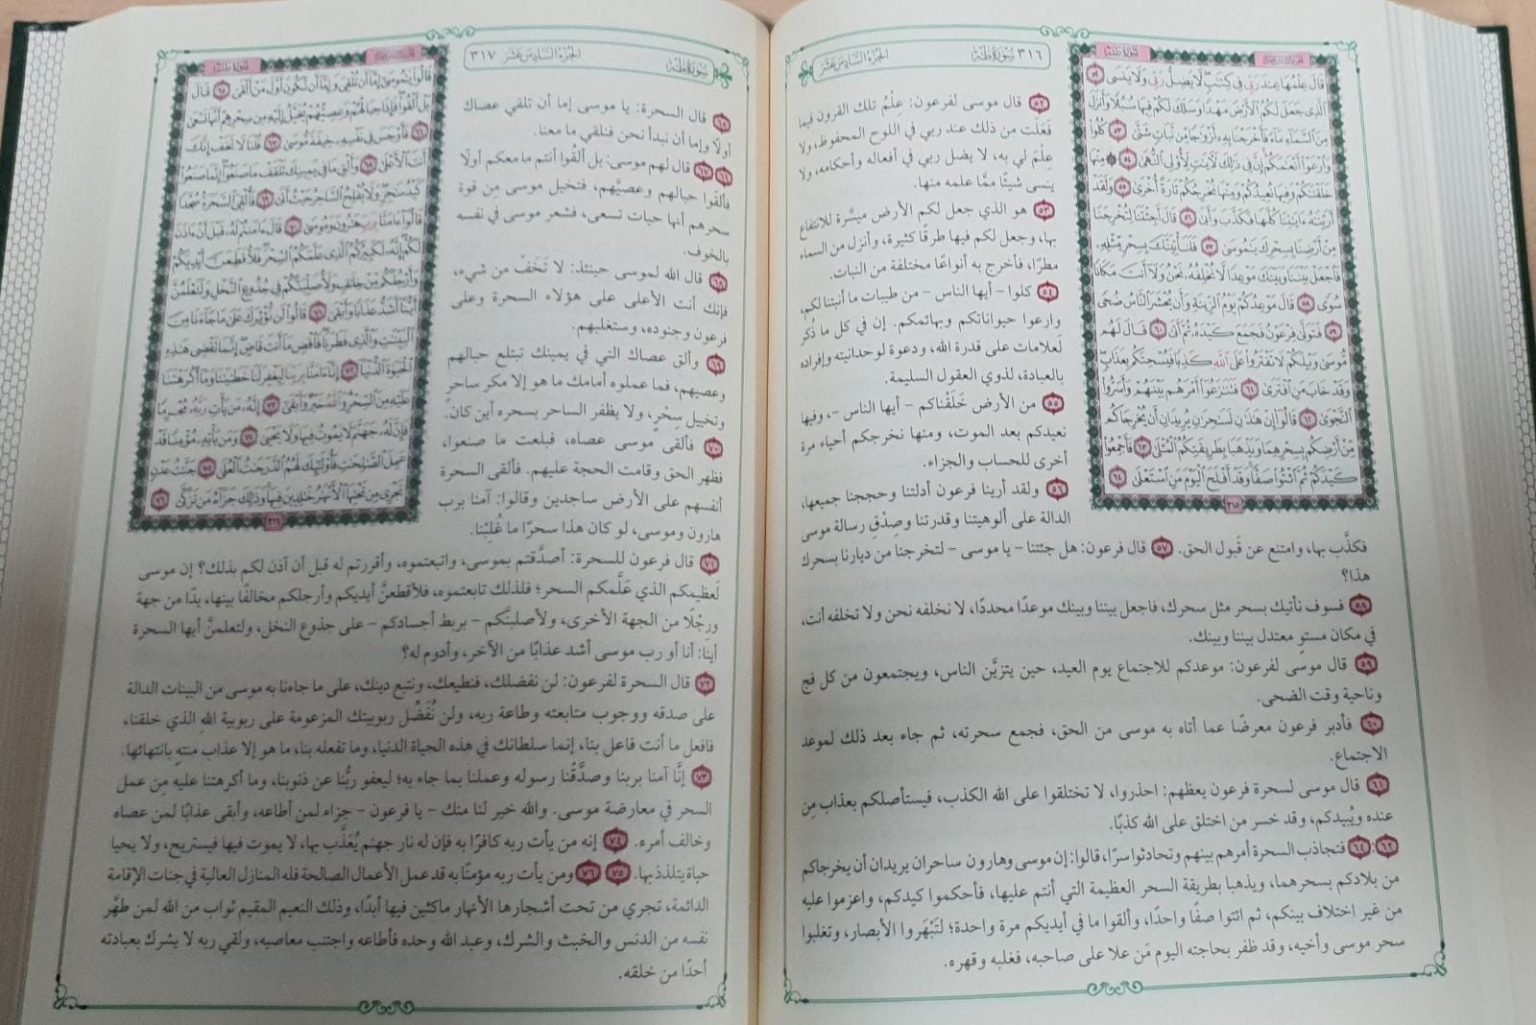 ٣١٦ سُورَةُ طه
الجُزْءُ السَّادِسَ عَشَرَ
قَالَ عِلْمُهَا عِندَ رَبِّي فِي كِتَٰبٍ لَّا يَضِلُّ رَبِّي وَلَا يَنسَى ٥٢
ٱلَّذِي جَعَلَ لَكُمُ ٱلْأَرْضَ مَهْدًا وَسَلَكَ لَكُمْ فِيهَا سُبُلًا وَأَنزَلَ
مِنَ ٱلسَّمَآءِ مَآءً فَأَخْرَجْنَا بِهِۦٓ أَزْوَٰجًا مِّن نَّبَاتٍ شَتَّىٰ ٥٣ كُلُوا۟
وَٱرْعَوْا۟ أَنْعَٰمَكُمْ إِنَّ فِي ذَٰلِكَ لَءَايَٰتٍ لِّأُو۟لِي ٱلنُّهَىٰ ٥٤ ۞ مِنْهَا
خَلَقْنَٰكُمْ وَفِيهَا نُعِيدُكُمْ وَمِنْهَا نُخْرِجُكُمْ تَارَةً أُخْرَىٰ ٥٥ وَلَقَدْ
أَرَيْنَٰهُ ءَايَٰتِنَا كُلَّهَا فَكَذَّبَ وَأَبَىٰ ٥٦ قَالَ أَجِئْتَنَا لِتُخْرِجَنَا
مِنْ أَرْضِنَا بِسِحْرِكَ يَٰمُوسَىٰ ٥٧ فَلَنَأْتِيَنَّكَ بِسِحْرٍ مِّثْلِهِۦ
فَٱجْعَلْ بَيْنَنَا وَبَيْنَكَ مَوْعِدًا لَّا نُخْلِفُهُۥ نَحْنُ وَلَآ أَنتَ مَكَانًا
سُوًى ٥٨ قَالَ مَوْعِدُكُمْ يَوْمُ ٱلزِّينَةِ وَأَن يُحْشَرَ ٱلنَّاسُ ضُحًى
٥٩ فَتَوَلَّىٰ فِرْعَوْنُ فَجَمَعَ كَيْدَهُۥ ثُمَّ أَتَىٰ ٦٠ قَالَ لَهُم
مُّوسَىٰ وَيْلَكُمْ لَا تَفْتَرُوا۟ عَلَى ٱللَّهِ كَذِبًا فَيُسْحِتَكُم بِعَذَابٍ
وَقَدْ خَابَ مَنِ ٱفْتَرَىٰ ٦١ فَتَنَٰزَعُوٓا۟ أَمْرَهُم بَيْنَهُمْ وَأَسَرُّوا۟
ٱلنَّجْوَىٰ ٦٢ قَالُوٓا۟ إِنْ هَٰذَٰنِ لَسَٰحِرَٰنِ يُرِيدَانِ أَن يُخْرِجَاكُم
مِّنْ أَرْضِكُم بِسِحْرِهِمَا وَيَذْهَبَا بِطَرِيقَتِكُمُ ٱلْمُثْلَىٰ ٦٣ فَأَجْمِعُوا۟
كَيْدَكُمْ ثُمَّ ٱئْتُوا۟ صَفًّا وَقَدْ أَفْلَحَ ٱلْيَوْمَ مَنِ ٱسْتَعْلَىٰ ٦٤
٣١٥
٥٢ قال موسى لفرعون: عِلْمُ تلك القرون فيما
فَعَلَت من ذلك عند ربي في اللوح المحفوظ، ولا
عِلْمَ لي به، لا يضل ربي في أفعاله وأحكامه، ولا
ينسى شيئًا ممَّا علمه منها.
٥٣ هو الذي جعل لكم الأرض ميسَّرة للانتفاع
بها، وجعل لكم فيها طرقًا كثيرة، وأنزل من السماء
مطرًا، فأخرج به أنواعًا مختلفة من النبات.
٥٤ كلوا - أيها الناس - من طيبات ما أنبتنا لكم،
وارعوا حيواناتكم وبهائمكم. إن في كل ما ذُكر
لَعلامات على قدرة الله، ودعوة لوحدانيته وإفراده
بالعبادة، لذوي العقول السليمة.
٥٥ من الأرض خَلَقْناكم - أيها الناس -، وفيها
نعيدكم بعد الموت، ومنها نخرجكم أحياء مرة
أخرى للحساب والجزاء.
٥٦ ولقد أرينا فرعون أدلتنا وحججنا جميعها،
الدالة على ألوهيتنا وقدرتنا وصِدْقِ رسالة موسى
فكذَّب بها، وامتنع عن قَبول الحق. ٥٧ قال فرعون: هل جئتنا - يا موسى - لتخرجنا من ديارنا بسحرك
هذا؟
٥٨ فسوف نأتيك بسحر مثل سحرك، فاجعل بيننا وبينك موعدًا محددًا، لا نخلفه نحن ولا تخلفه أنت،
في مكان مستوٍ معتدل بيننا وبينك.
٥٩ قال موسى لفرعون: موعدكم للاجتماع يوم العيد، حين يتزيَّن الناس، ويجتمعون من كل فج
وناحية وقت الضحى.
٦٠ فأدبر فرعون معرضًا عما أتاه به موسى من الحق، فجمع سحرته، ثم جاء بعد ذلك لموعد
الاجتماع.
٦١ قال موسى لسحرة فرعون يعظهم: احذروا، لا تختلقوا على الله الكذب، فيستأصلكم بعذاب مِن
عنده ويُبيدكم، وقد خسر من اختلق على الله كذبًا.
٦٢: ٦٤ فتجاذب السحرة أمرهم بينهم وتحادثوا سرًا، قالوا: إن موسى وهارون ساحران يريدان أن يخرجاكم
من بلادكم بسحرهما، ويذهبا بطريقة السحر العظيمة التي أنتم عليها، فأحكموا كيدكم، واعزموا عليه
من غير اختلاف بينكم، ثم ائتوا صفًا واحدًا، وألقوا ما في أيديكم مرة واحدة؛ لتَبْهَروا الأبصار، وتغلبوا
سحر موسى وأخيه، وقد ظفر بحاجته اليوم مَن علا على صاحبه، فغلبه وقهره.
سُورَةُ طه
الجُزْءُ السَّادِسَ عَشَرَ ٣١٧
قَالُوا۟ يَٰمُوسَىٰٓ إِمَّآ أَن تُلْقِيَ وَإِمَّآ أَن نَّكُونَ أَوَّلَ مَنْ أَلْقَىٰ ٦٥ قَالَ
بَلْ أَلْقُوا۟ فَإِذَا حِبَالُهُمْ وَعِصِيُّهُمْ يُخَيَّلُ إِلَيْهِ مِن سِحْرِهِمْ أَنَّهَا تَسْعَىٰ
٦٦ فَأَوْجَسَ فِي نَفْسِهِۦ خِيفَةً مُّوسَىٰ ٦٧ قُلْنَا لَا تَخَفْ إِنَّكَ
أَنتَ ٱلْأَعْلَىٰ ٦٨ وَأَلْقِ مَا فِي يَمِينِكَ تَلْقَفْ مَا صَنَعُوٓا۟ إِنَّمَا صَنَعُوا۟
كَيْدُ سَٰحِرٍ وَلَا يُفْلِحُ ٱلسَّاحِرُ حَيْثُ أَتَىٰ ٦٩ فَأُلْقِيَ ٱلسَّحَرَةُ سُجَّدًا
قَالُوٓا۟ ءَامَنَّا بِرَبِّ هَٰرُونَ وَمُوسَىٰ ٧٠ قَالَ ءَامَنتُمْ لَهُۥ قَبْلَ أَنْ ءَاذَنَ
لَكُمْ إِنَّهُۥ لَكَبِيرُكُمُ ٱلَّذِي عَلَّمَكُمُ ٱلسِّحْرَ فَلَأُقَطِّعَنَّ أَيْدِيَكُمْ
وَأَرْجُلَكُم مِّنْ خِلَٰفٍ وَلَأُصَلِّبَنَّكُمْ فِي جُذُوعِ ٱلنَّخْلِ وَلَتَعْلَمُنَّ
أَيُّنَآ أَشَدُّ عَذَابًا وَأَبْقَىٰ ٧١ قَالُوا۟ لَن نُّؤْثِرَكَ عَلَىٰ مَا جَآءَنَا مِنَ
ٱلْبَيِّنَٰتِ وَٱلَّذِي فَطَرَنَا فَٱقْضِ مَآ أَنتَ قَاضٍ إِنَّمَا تَقْضِي هَٰذِهِ
ٱلْحَيَوٰةَ ٱلدُّنْيَآ ٧٢ إِنَّآ ءَامَنَّا بِرَبِّنَا لِيَغْفِرَ لَنَا خَطَٰيَٰنَا وَمَآ أَكْرَهْتَنَا
عَلَيْهِ مِنَ ٱلسِّحْرِ وَٱللَّهُ خَيْرٌ وَأَبْقَىٰٓ ٧٣ إِنَّهُۥ مَن يَأْتِ رَبَّهُۥ مُجْرِمًا
فَإِنَّ لَهُۥ جَهَنَّمَ لَا يَمُوتُ فِيهَا وَلَا يَحْيَىٰ ٧٤ وَمَن يَأْتِهِۦ مُؤْمِنًا قَدْ
عَمِلَ ٱلصَّٰلِحَٰتِ فَأُو۟لَٰٓئِكَ لَهُمُ ٱلدَّرَجَٰتُ ٱلْعُلَىٰ ٧٥ جَنَّٰتُ عَدْنٍ
تَجْرِي مِن تَحْتِهَا ٱلْأَنْهَٰرُ خَٰلِدِينَ فِيهَا وَذَٰلِكَ جَزَآءُ مَن تَزَكَّىٰ ٧٦
٣١٦
٦٥ قال السحرة: يا موسى إما أن تلقي عصاك
أولًا وإما أن نبدأ نحن فنلقي ما معنا.
٦٦ ٦٧ قال لهم موسى: بل ألقُوا أنتم ما معكم أولًا
فألقوا حبالهم وعصيَّهم، فتخيل موسى مِن قوة
سحرهم أنها حيات تسعى، فشعر موسى في نفسه
بالخوف.
٦٨ قال الله لموسى حينئذ: لا تَخَفْ من شيء،
فإنك أنت الأعلى على هؤلاء السحرة وعلى
فرعون وجنوده، وستغلبهم.
٦٩ وألق عصاك التي في يمينك تبتلع حبالهم
وعصيهم، فما عملوه أمامك ما هو إلا مكر ساحرٍ
وتخييل سِحْرٍ، ولا يظفر الساحر بسحره أين كان.
٧٠ فألقى موسى عصاه، فبلعت ما صنعوا،
فظهر الحق وقامت الحجة عليهم. فألقى السحرة
أنفسهم على الأرض ساجدين وقالوا: آمنا برب
هارون وموسى، لو كان هذا سحرًا ما غُلِبْنا.
٧١ قال فرعون للسحرة: أصدَّقتم بموسى، واتبعتموه، وأقررتم له قبل أن آذن لكم بذلك؟ إن موسى
لَعظيمكم الذي عَلَّمكم السحر؛ فلذلك تابعتموه، فلأقطعنَّ أيديكم وأرجلكم مخالفًا بينها، يدًا من جهة
ورِجْلًا من الجهة الأخرى، ولأصلبنَّكم - بربط أجسادكم - على جذوع النخل، ولتعلمنَّ أيها السحرة
أينا: أنا أو رب موسى أشد عذابًا من الآخر، وأدوم له؟
٧٢ قال السحرة لفرعون: لن نفضلك، فنطيعك، ونتبع دينك، على ما جاءنا به موسى من البينات الدالة
على صدقه ووجوب متابعته وطاعة ربه، ولن نُفَضِّل ربوبيتك المزعومة على ربوبية اللهِ الذي خلقنا،
فافعل ما أنت فاعل بنا، إنما سلطانك في هذه الحياة الدنيا، وما تفعله بنا، ما هو إلا عذاب منتهٍ بانتهائها.
٧٣ إنَّا آمنا بربنا وصدَّقْنا رسوله وعملنا بما جاء به؛ ليعفو ربُّنا عن ذنوبنا، وما أكرهتنا عليه مِن عمل
السحر في معارضة موسى. والله خير لنا منك - يا فرعون - جزاء لمن أطاعه، وأبقى عذابًا لمن عصاه
وخالف أمره. ٧٤ إنه من يأت ربه كافرًا به فإن له نار جهنم يُعَذَّب بها، لا يموت فيها فيستريح، ولا يحيا
حياة يتلذذ بها. ٧٥ ٧٦ ومن يأت ربه مؤمنًا به قد عمل الأعمال الصالحة فله المنازل العالية في جنات الإقامة
الدائمة، تجري من تحت أشجارها الأنهار ماكثين فيها أبدًا، وذلك النعيم المقيم ثواب من الله لمن طهَّر
نفسه من الدنس والخبث والشرك، وعبد الله وحده فأطاعه واجتنب معاصيه، ولقي ربه لا يشرك بعبادته
أحدًا من خلقه.